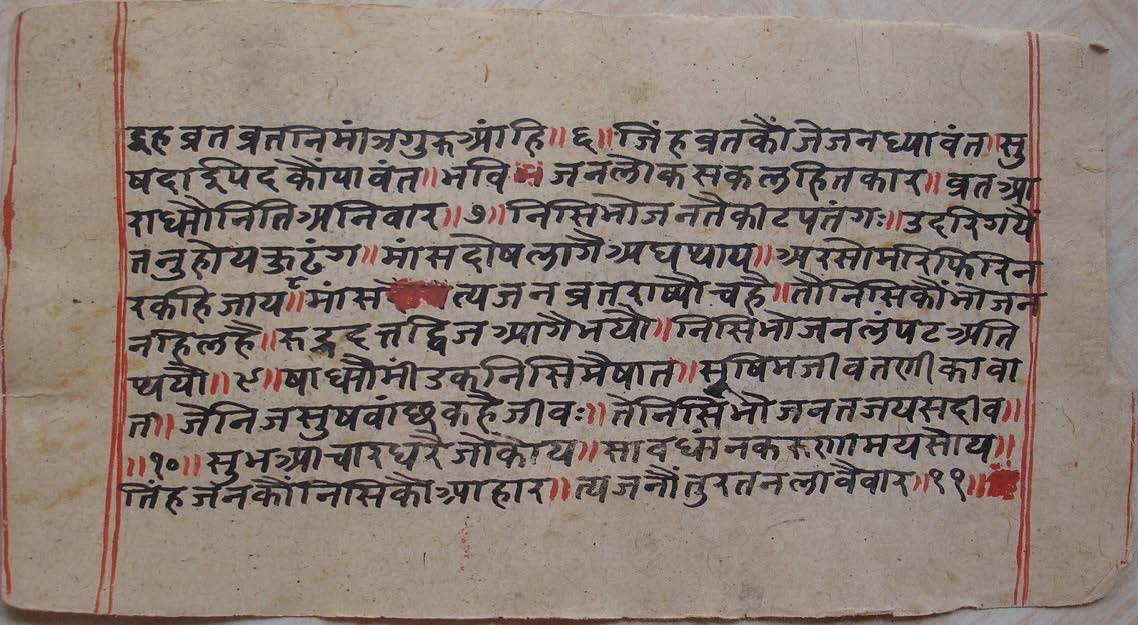 इह व्रत व्रतनिमांत्रगुरुआंहि॥६॥जिंहव्रतकौंजेजनध्यावंत॥सु
षदाईपदकौंपावंत॥भवि जनलोकसकलहितकार॥व्रतआ
राध्यौनितिअनिवार॥७॥निसिभोजनतैकीटपतंगः॥उदरिगयैं
तनुहोयकुढंग॥मांसदोषलागैअघथाय॥अरसोमरिफिरिन
रकहिजाय॥८मांस त्यजनव्रतराष्यौचहै॥तौनिसिकौंभोजन
नहिलहै॥रुद्रदत्तद्विजआगैभयौ॥निसिभोजनलंपटअति
थयौ॥९॥षाध्यौमींडकनिसिमैषात॥सूषिमजीवतणीकावा
त॥जैनिजसुषवांछकहैजीवः॥तेनिसिभोजवतजयसदीव॥
॥१०॥सुभआचारधरैजोकोय॥सावधांनकरुणामयसोय॥
तिंहजनकौंनिसिकौआहार॥त्यजनौंतुरतनलावैवार॥११॥